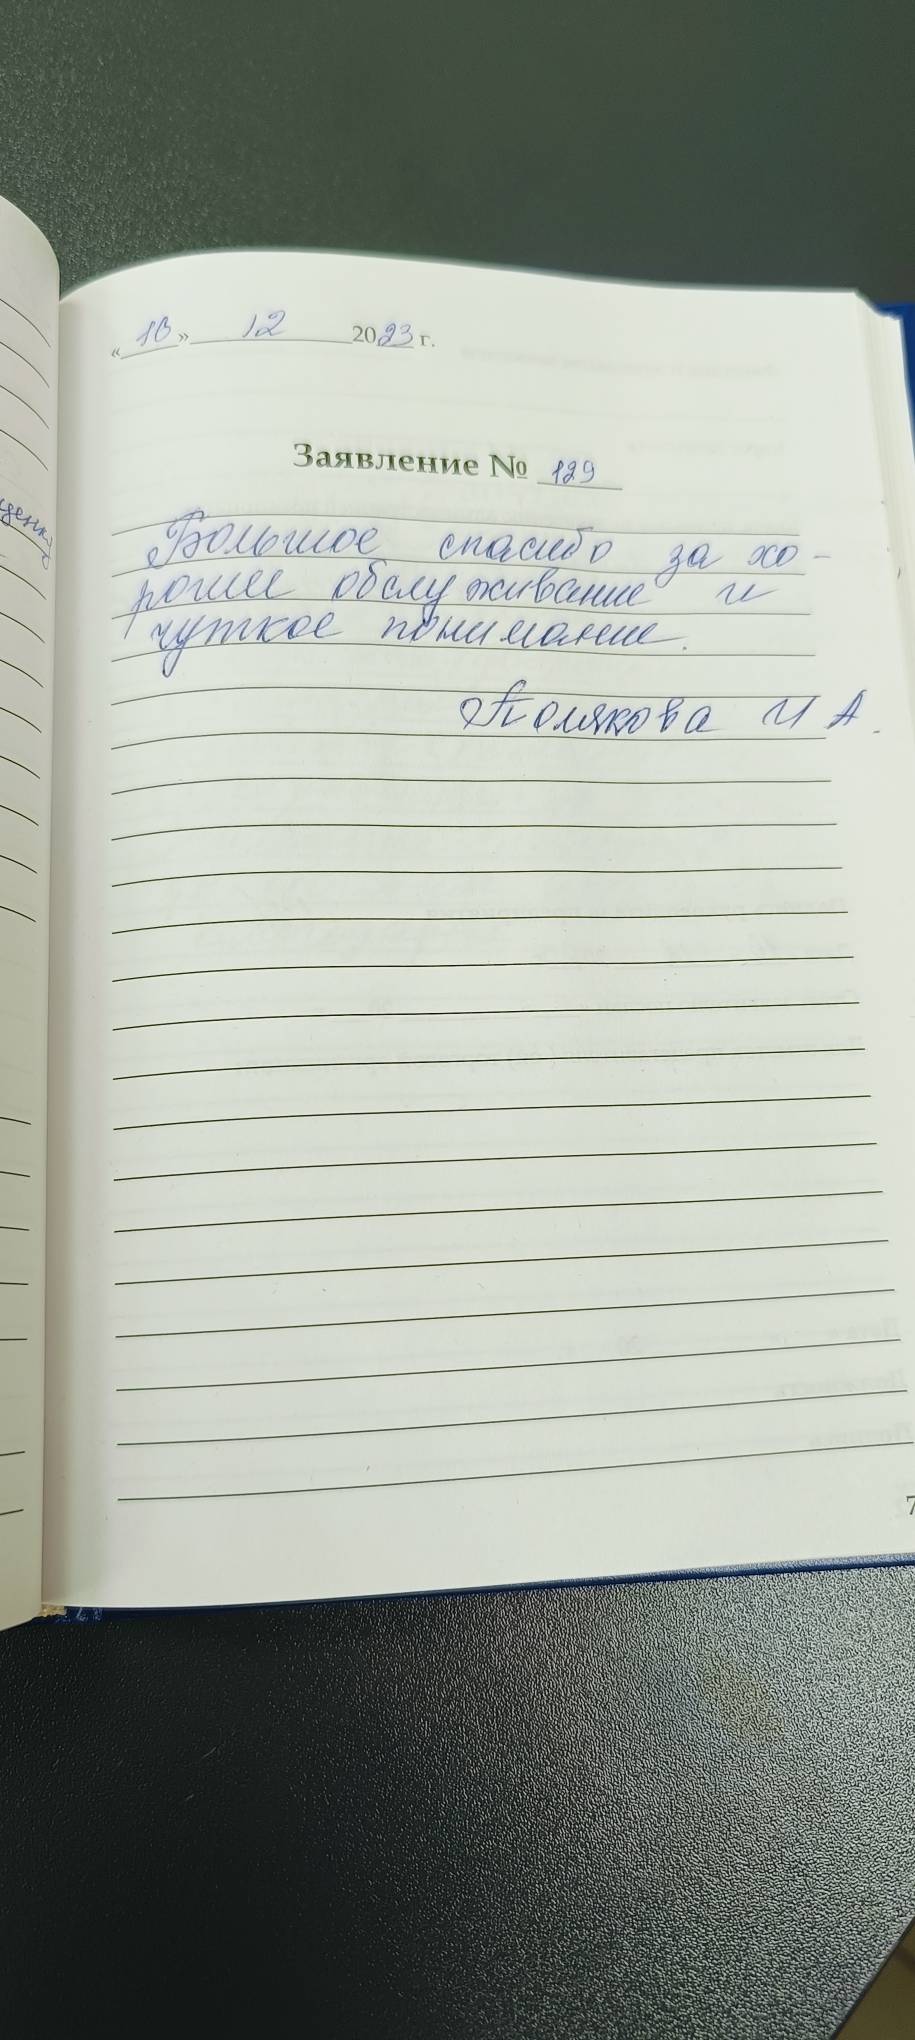 «18» 12 2023 г.
Заявление № 129
Большое спасибо за хо-
рошее обслуживание и
чуткое понимание.
Полякова И А.